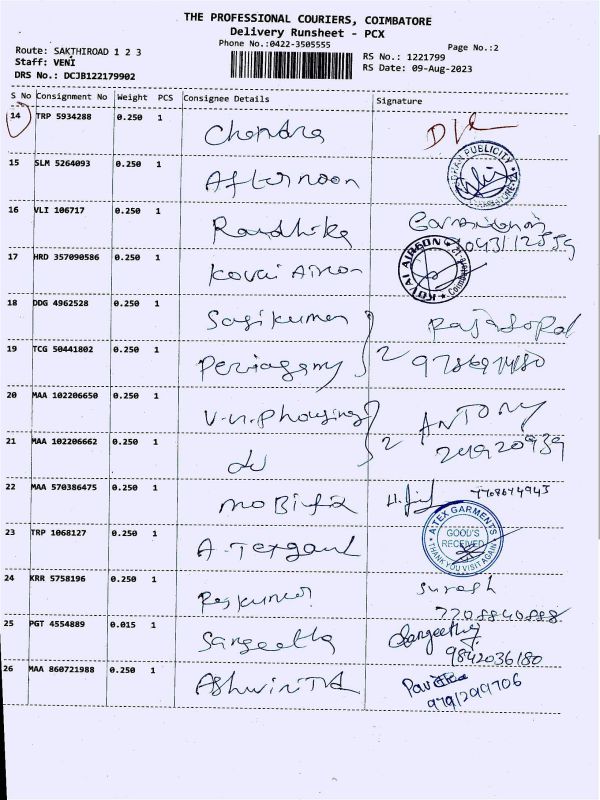 THE PROFESSIONAL COURIERS, COIMBATORE
Delivery Runsheet - PCX
Phone No.:0422-3505555
Page No.:2
Route: SAKTHIROAD 1 2 3
Staff: VENI
DRS No.: DCJB122179902
RS No.: 1221799
RS Date: 09-Aug-2023
S No Consignment No Weight PCS Consignee Details Signature
14 TRP 5934288 0.250 1 Chandra
15 SLM 5264093 0.250 1 Afternoon PUBLICITY
16 VLI 106717 0.250 1 Raadhika
17 HRD 357090586 0.250 1 Kovai Aircon KOVAI AIRCON
18 DDG 4962528 0.250 1 Sasikumar Rajagopal
19 TCG 50441802 0.250 1 Periasamy 2
20 MAA 102206650 0.250 1 V.n.p housing ANTONY
21 MAA 102206662 0.250 1 do 2 24920939
22 MAA 570386475 0.250 1 mobifix
23 TRP 1068127 0.250 1 A.TEX GARMENTS GOOD'S RECEIVED THANK YOU VISIT AGAIN
24 KRR 5758196 0.250 1 Rajkumar Suresh
7708840888
25 PGT 4554889 0.015 1 Sangeetha Sangeetha
9842036180
26 MAA 860721988 0.250 1 Pavithra
9791299706